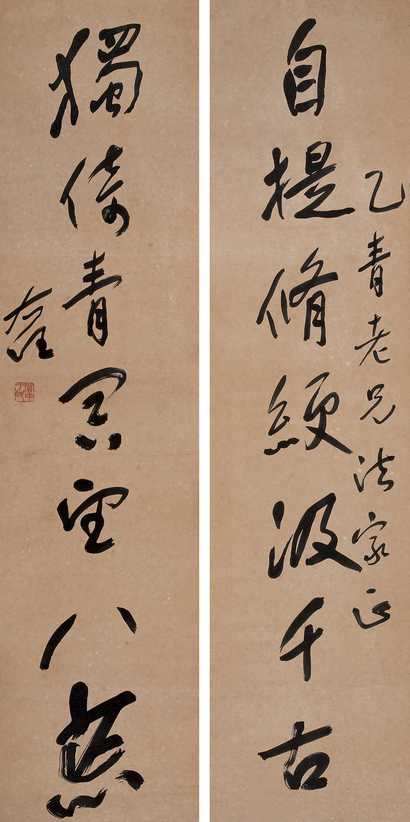 自提脩綆汲千古
乙青老兄法家正
獨倚青冥望八荒
右任